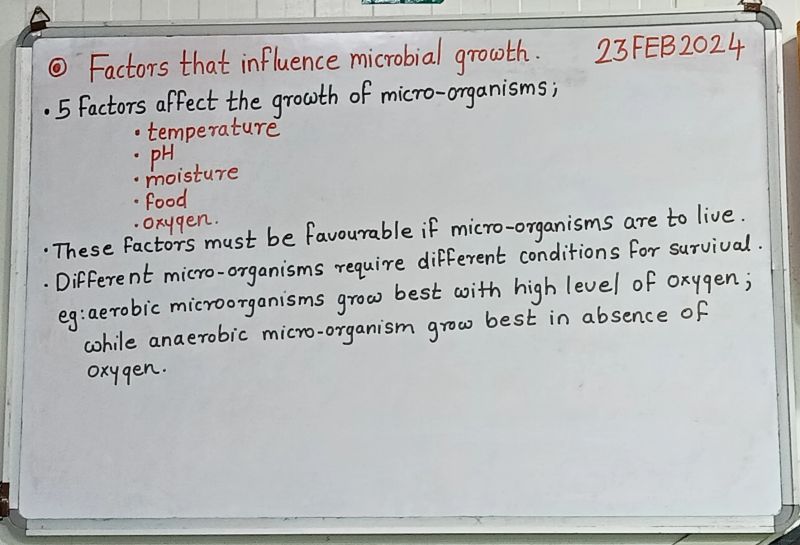 Factors that influence microbial growth. 23FEB2024
• 5 Factors affect the growth of micro-organisms;
• temperature
• pH
• moisture
• food
• oxygen.
• These factors must be favourable if micro-organisms are to live.
• Different micro-organisms require different conditions for survival.
eg: aerobic microorganisms grow best with high level of oxygen;
while anaerobic micro-organism grow best in absence of
oxygen.